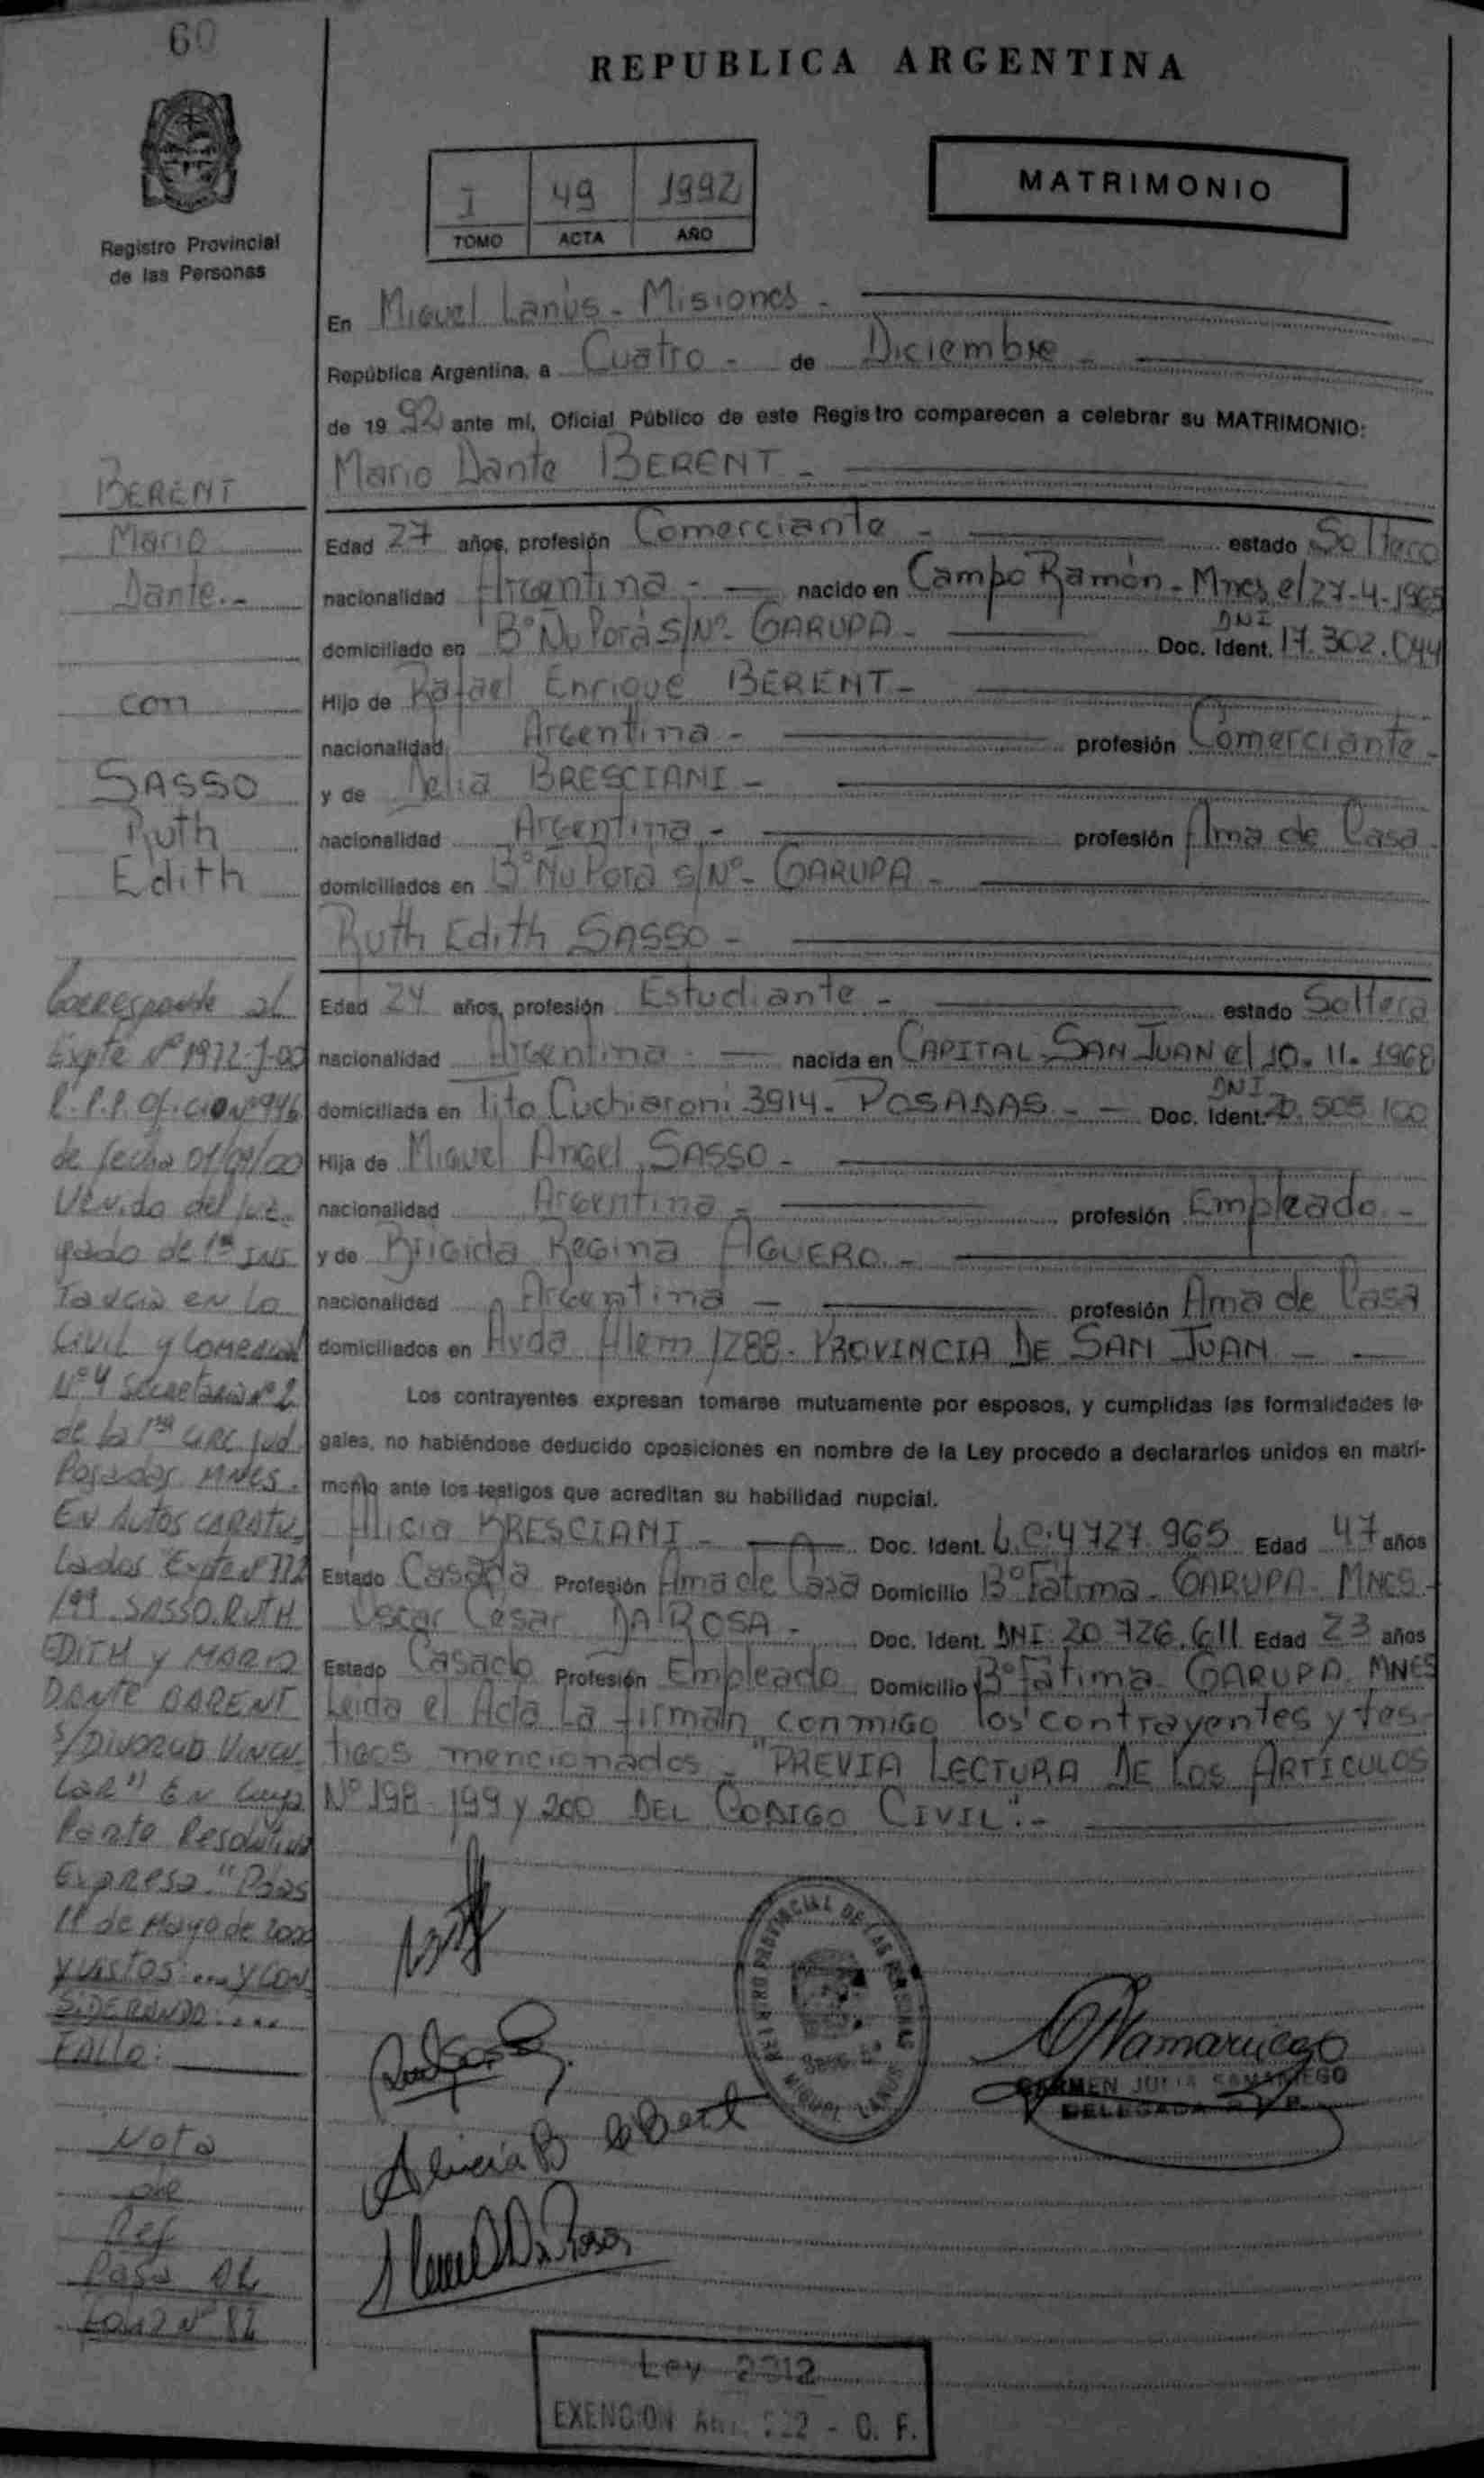 60
REPUBLICA ARGENTINA
MATRIMONIO
I 49 1992
TOMO ACTA AÑO
Registro Provincial
de las Personas
En Miguel Lanús - Misiones -
República Argentina, a Cuatro - de Diciembre -
de 1992 ante mí, Oficial Público de este Registro comparecen a celebrar su MATRIMONIO:
Mario Dante BERENT -
Edad 27 años, profesión Comerciante - estado Soltero
nacionalidad Argentina - nacido en Campo Ramón - Mnes el 27-4-1965
domiciliado en B° Ñu Porá S/N° - GARUPA - Doc. Ident. DNI 17.302.044
Hijo de Rafael Enrique BERENT -
nacionalidad Argentina - profesión Comerciante -
y de Delia BRESCIANI -
nacionalidad Argentina - profesión Ama de Casa
domiciliados en B° Ñu Porá S/N° - GARUPA -
Ruth Edith SASSO -
Edad 24 años, profesión Estudiante - estado Soltera
nacionalidad Argentina - nacida en CAPITAL - SAN JUAN el 10-11-1968
domiciliada en Tito Cuchiaroni 3914 - POSADAS - - Doc. Ident. DNI 20.505.100
Hija de Miguel Angel SASSO -
nacionalidad Argentina - profesión Empleado -
y de Brigida Regina AGUERO -
nacionalidad Argentina - profesión Ama de Casa
domiciliados en Avda Alem 1288 - PROVINCIA DE SAN JUAN -
Los contrayentes expresan tomarse mutuamente por esposos, y cumplidas las formalidades le-
gales, no habiéndose deducido oposiciones en nombre de la Ley procedo a declararlos unidos en matri-
monio ante los testigos que acreditan su habilidad nupcial.
Alicia BRESCIANI - Doc. Ident. L.C. 4727.965 Edad 47 años
Estado Casada Profesión Ama de Casa Domicilio B° Fátima - GARUPA - MNES -
Oscar César DA ROSA - Doc. Ident. DNI 20.726.611 Edad 23 años
Estado Casado Profesión Empleado Domicilio B° Fátima - GARUPA - MNES
Leida el Acta la firman conmigo los contrayentes y tes-
tigos mencionados - "PREVIA LECTURA DE LOS ARTÍCULOS
N° 198 - 199 y 200 DEL CODIGO CIVIL" . -
BERENT
Mario
Dante. -
con
SASSO
Ruth
Edith
Corresponde al
Expte N° 1972-J-00
R.P.P. Oficio N° 946
de fecha 01/09/00
Venido del Juz-
gado de 1ra INS
Tancia en Lo
Civil y Comercial
N° 4 Secretaria N° 2
de la 1ra CIRC Jud.
Posadas MNES.
EN Autos CARATU-
Lados "Expte N° 772
/99 SASSO RUTH
EDITH y MARIO
DANTE BARENT
S/DIVORCIO VINCU-
LAR" EN Cuya
Parte Resolutiva
Expresa "Pdas
11 de Mayo de 2000
Y VISTOS ... Y CON
SIDERANDO: ....
FALLO:
Nota
de
Ref
Pasa AL
FOLIO N° 82
REGISTRO PROVINCIAL DE LAS PERSONAS
MIGUEL LANUS
CARMEN JULIA SAMANIEGO
DELEGADA R.P.P.
Ley 2312
EXENCION Art. 222 - C. F.